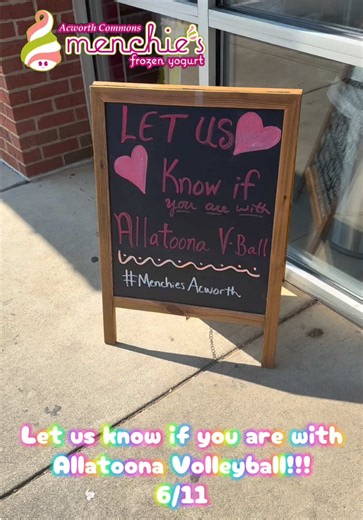 Acworth Commons
menchie's
frozen yogurt
LET US
Know if
you are with
Allatoona V-Ball
#MenchiesAcworth
Let us know if you are with
Allatoona Volleyball!!!
6/11